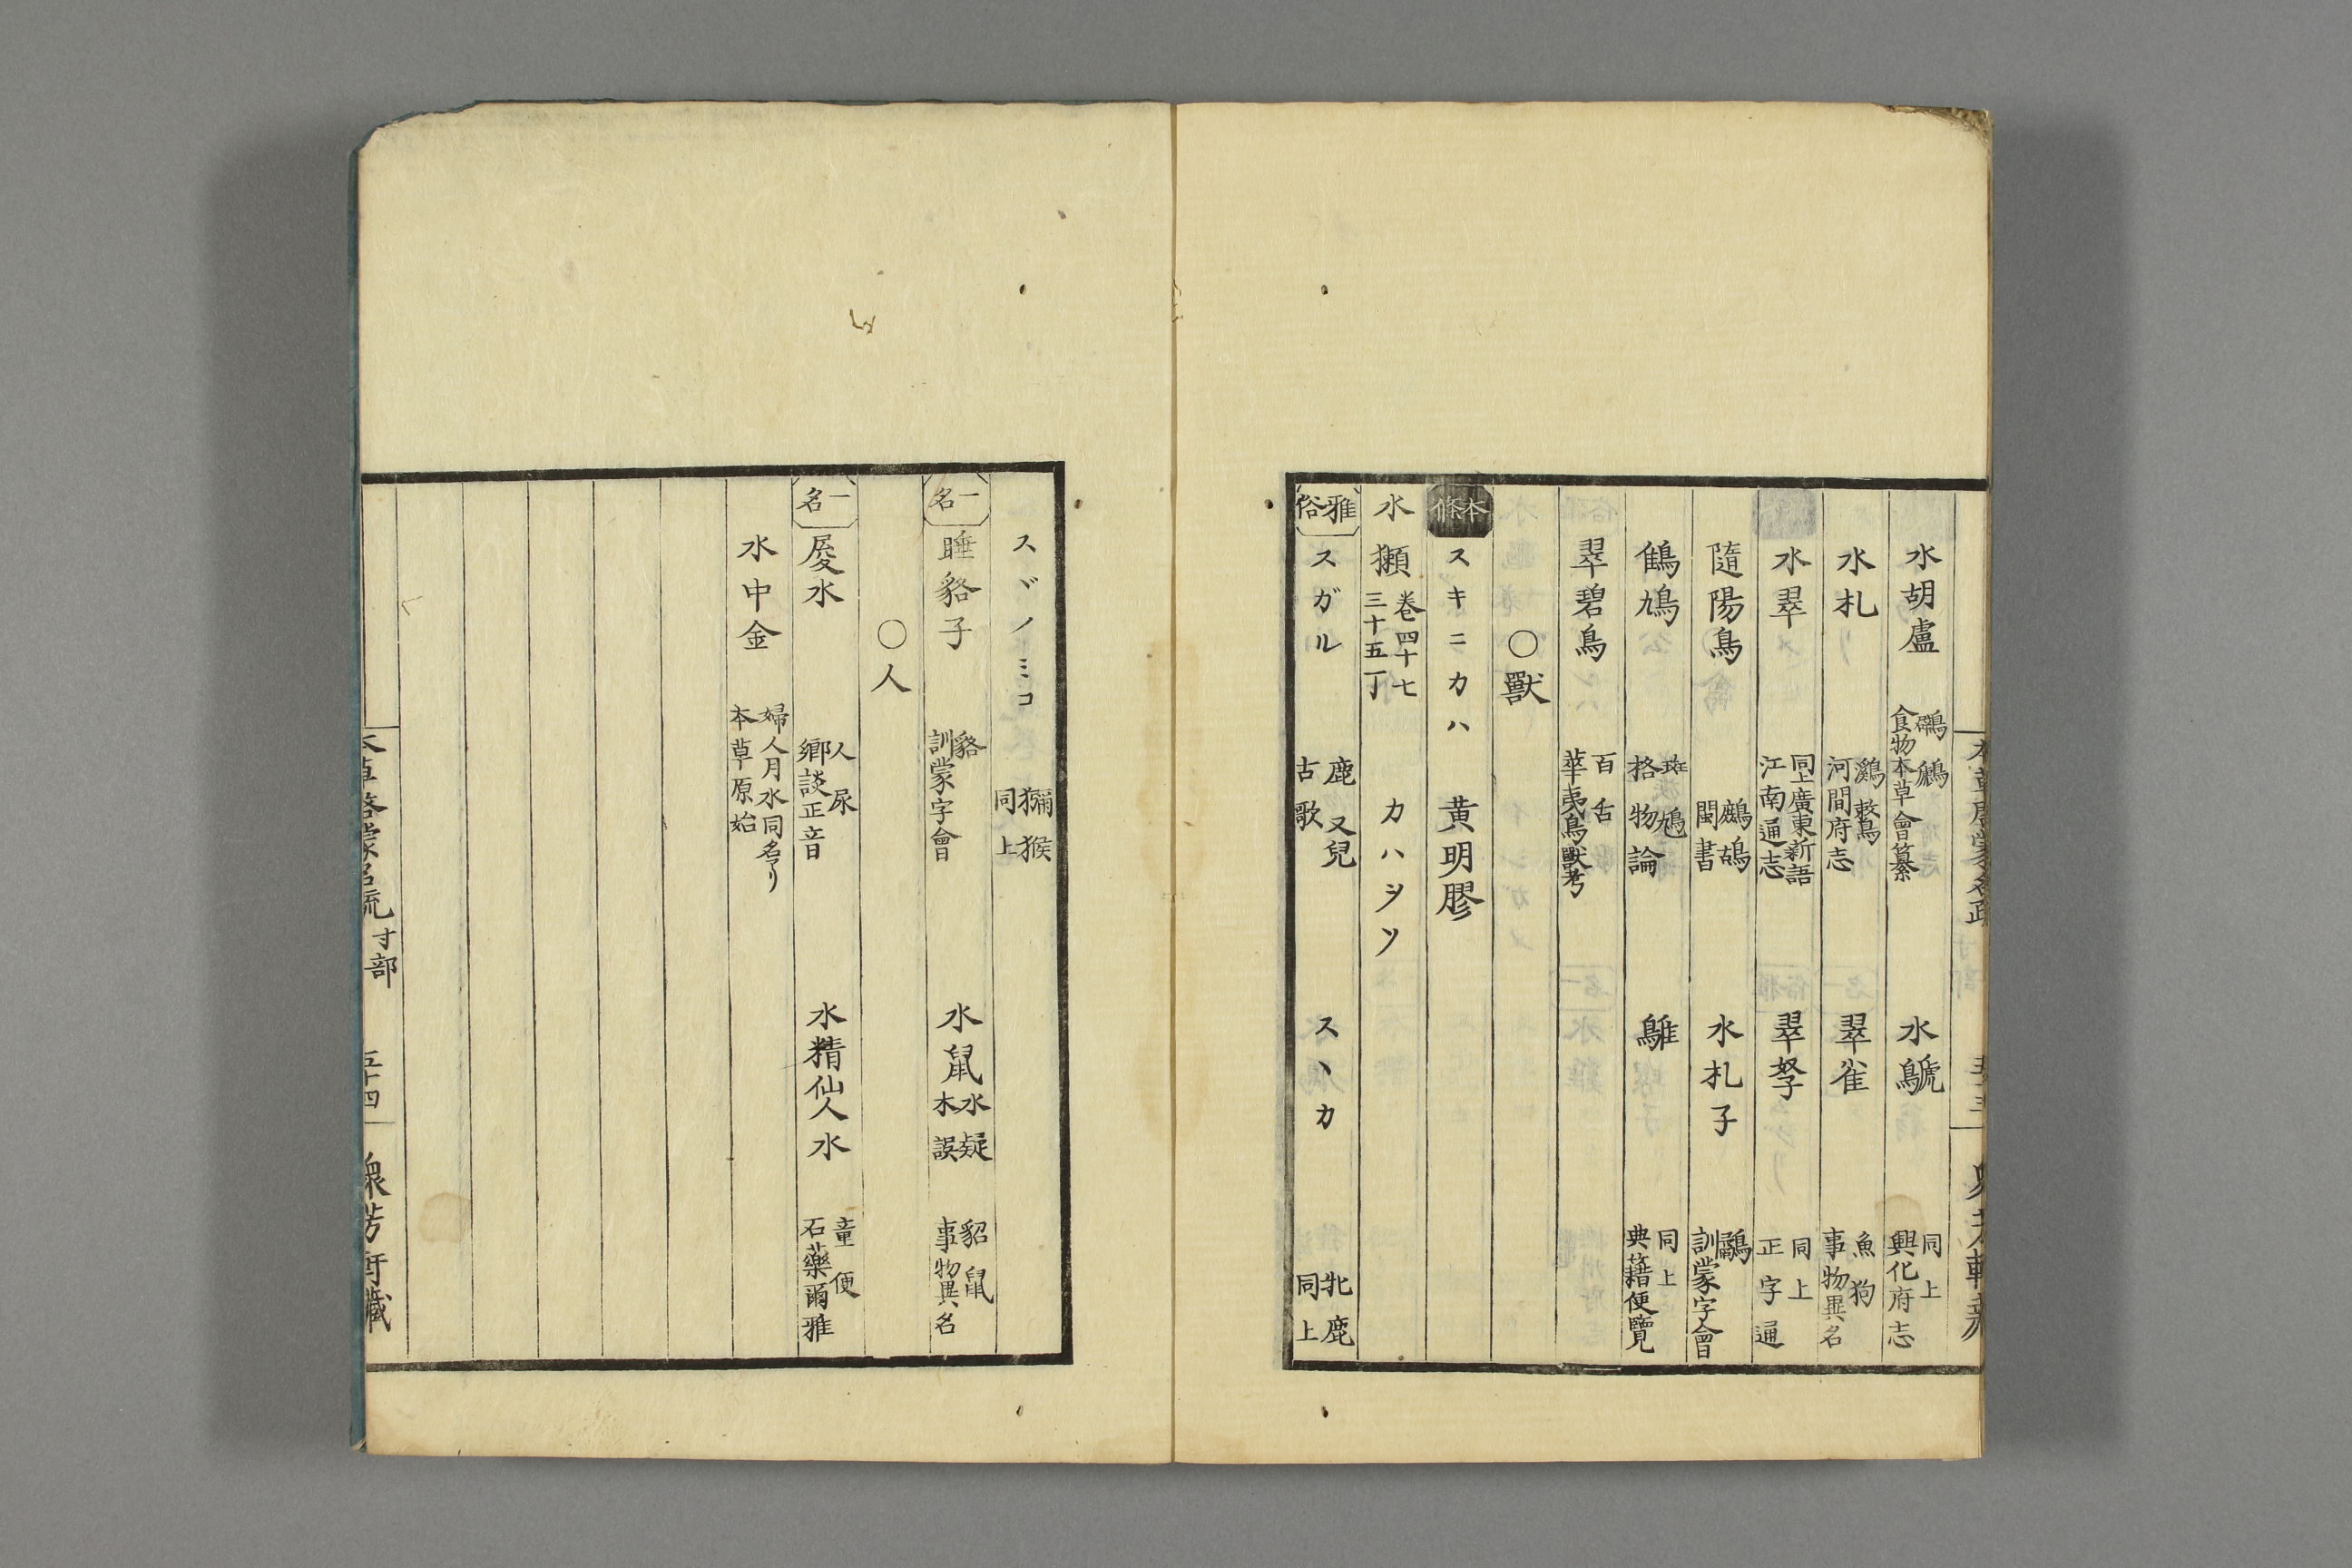 水胡盧 鸊鷉 食物本草會纂 水鷈 同上 興化府志
水札 鸂𪄠 河間府志 翠雀 魚狗 事物異名
水翠 同上廣東新語 江南通志 翠孥 同上 正字通
隨陽鳥 鷓鴣 閩書 水札子 鸊 訓蒙字會
鶴鳩 斑鳩 格物論 鵻 同上 典籍便覽
翠碧鳥 百舌 華夷鳥獸考
○獸
本條 スキニカハ 黄明膠
水獺 巻四十七 三十五丁 カハヲソ
雅俗 スガル 鹿又兒 古歌 スヽカ 牝鹿 同上
スヾノミコ 獼猴 同上
一名 睡貉子 貉 訓蒙字會 水鼠 水疑木誤 貂鼠 事物異名
○人
一名 屐水 人尿 郷談正音 水精仙人水 童便 石藥爾雅
水中金 婦人月水同名アリ 本草原始
本草啓蒙名疏 寸部 五十四 衆芳軒藏